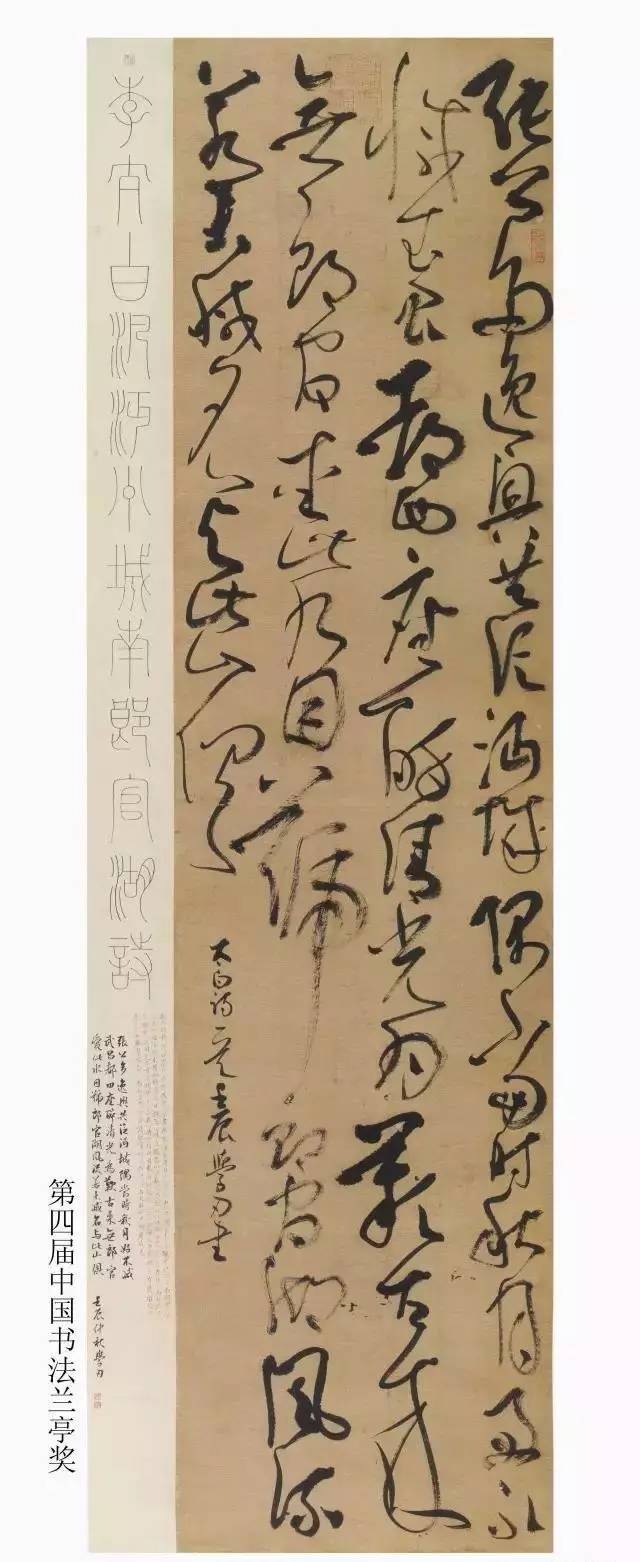 張公多逸興共泛沔城隅當時秋月好不
減武昌都四座醉清光為歡古來
無郎官愛此水因號郎官湖風流
若未減名與此山俱
太白詩 壬辰學 書
李太白泛沔州城南郎官湖詩
張公多逸興共泛沔城隅當時秋月好不減
武昌都四座醉清光為歡古來無郎官
愛此水因號郎官湖風流若未減名與此山俱 壬辰仲秋學
第四届中国书法兰亭奖